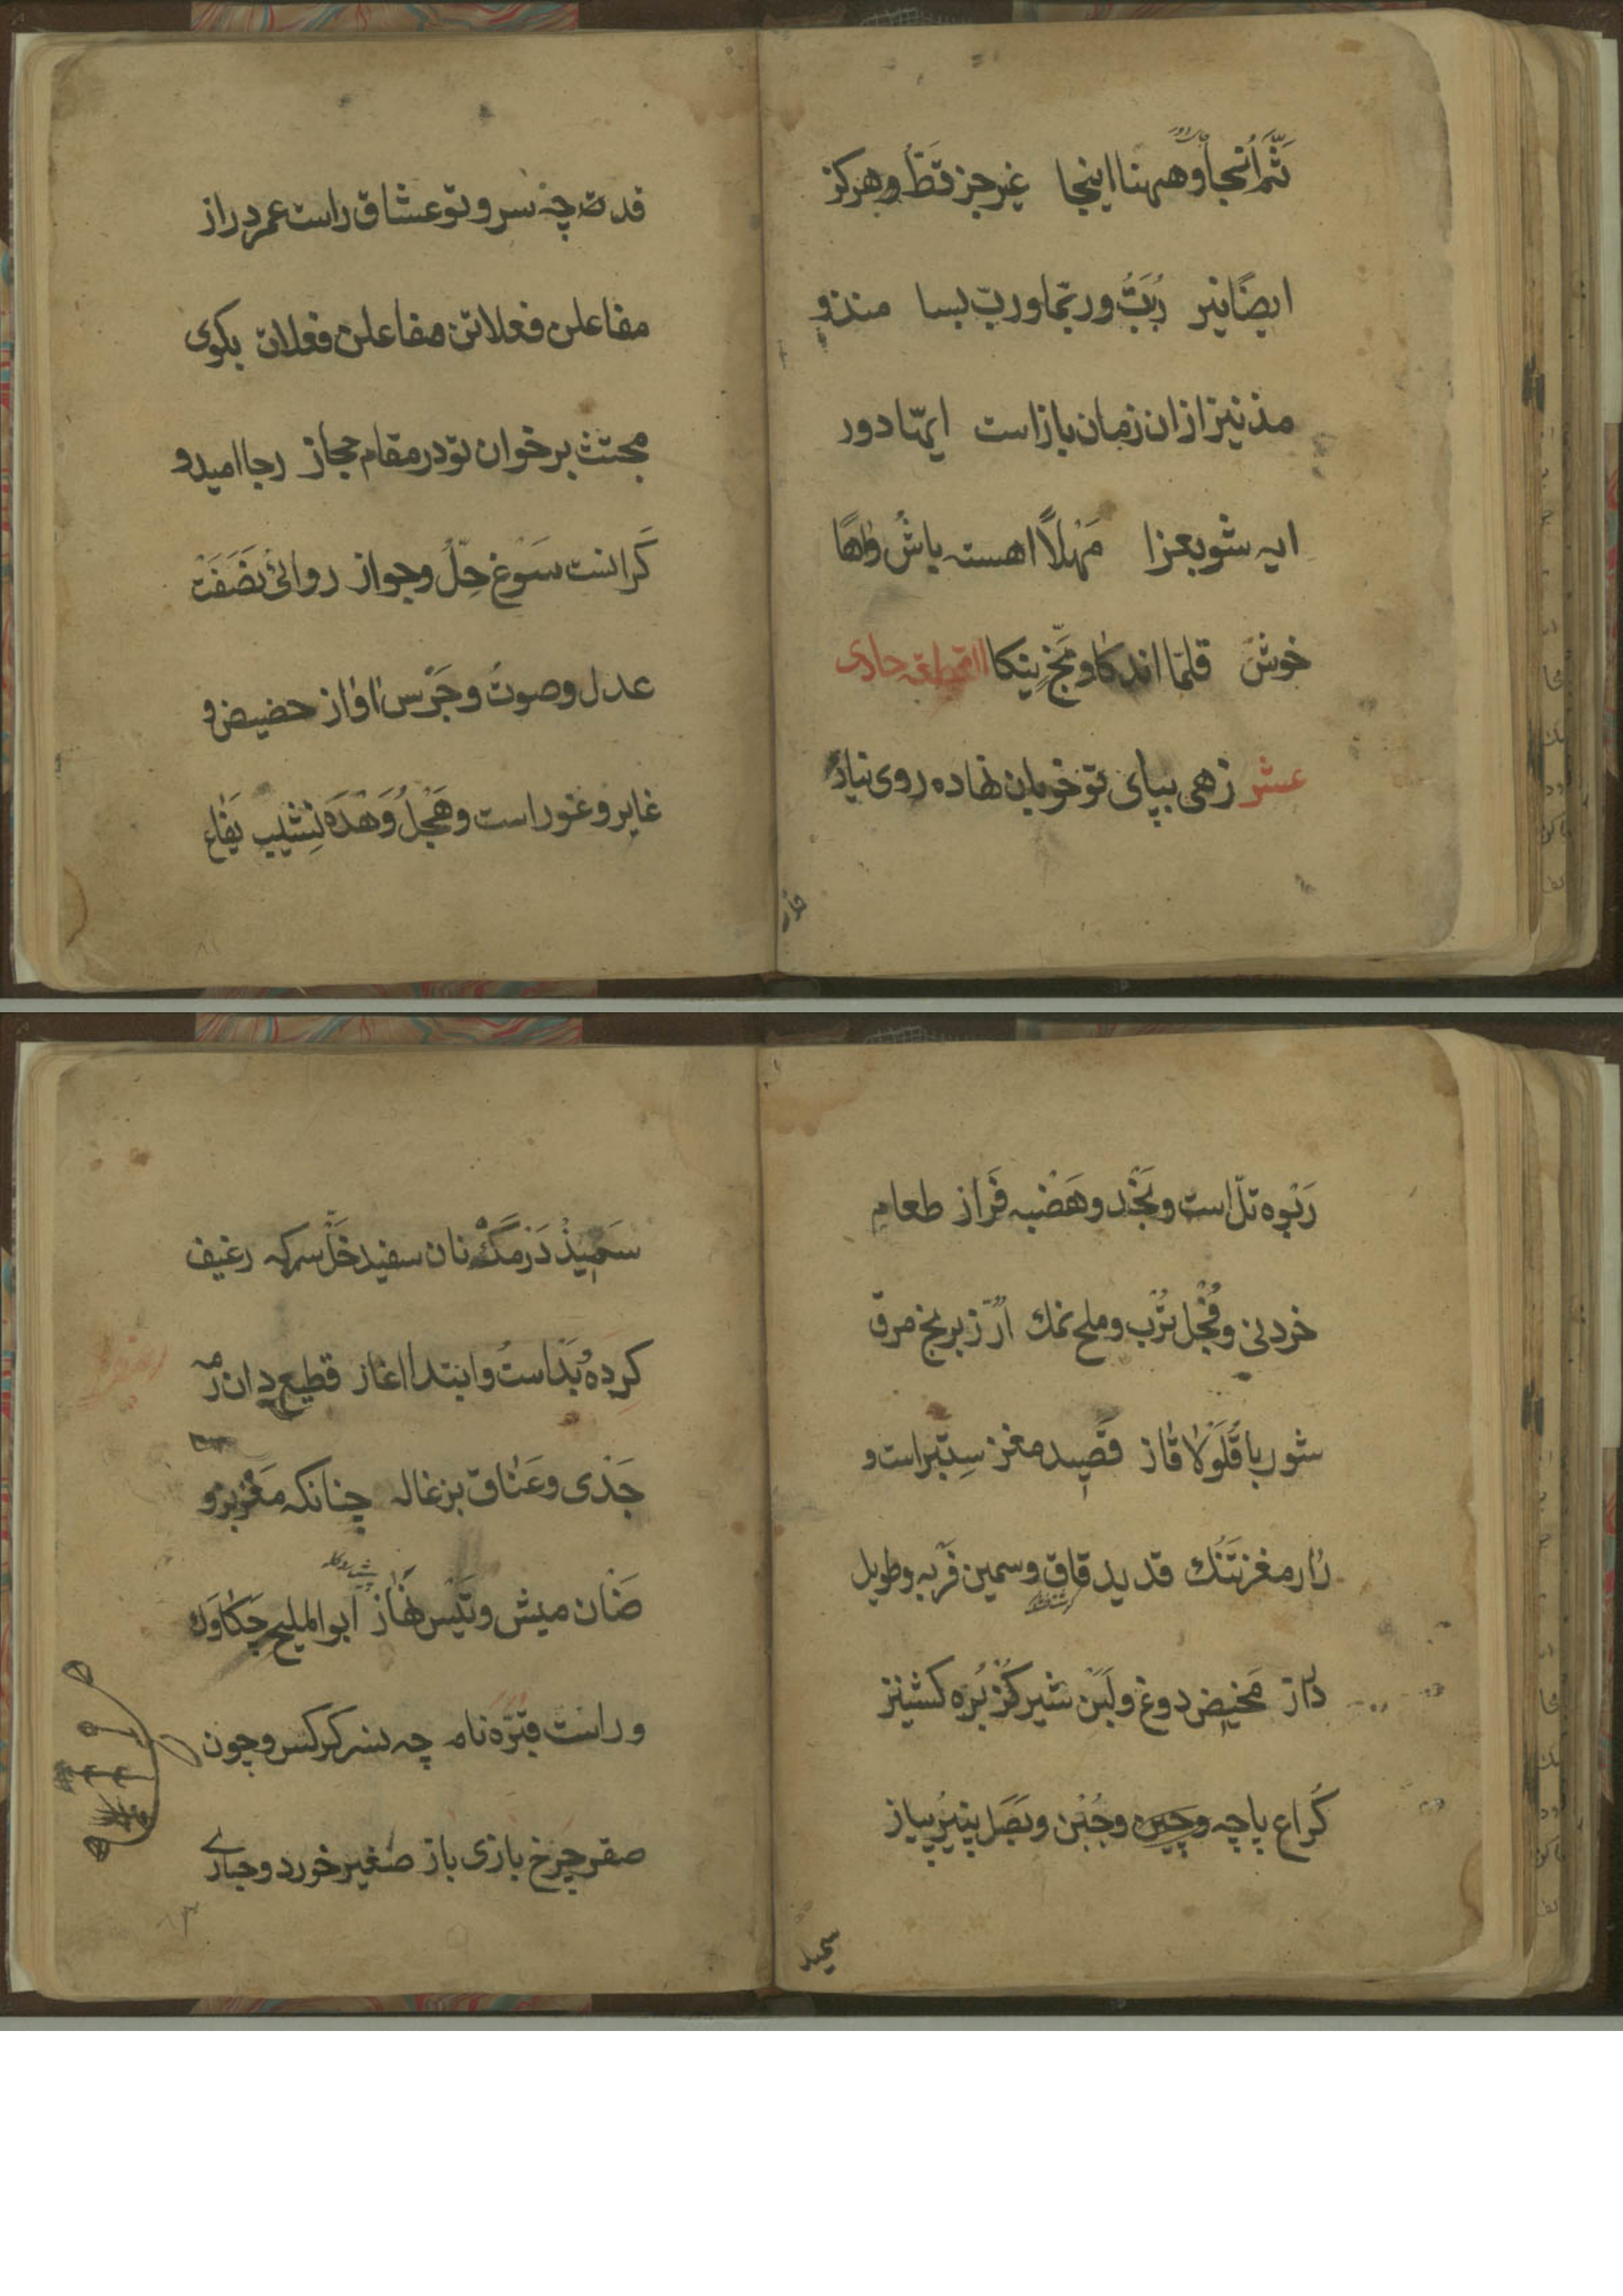 ثَمَّ اُنجا وههنا اینجا غیر جز قَطُّ و هرکز
ایضًا نیز رُبَتَّ و ربّما و ربّ بسا منذ و
مذ نیز از ان زمان باز است ایهّا دور
ایه شو بعزا مَهْلًا اهسته باش واهًا
خوش قلمّا اندکا و بَخٍّ نیکا القطعه حادی
عشر زهی بپای تو خوبان نهاده روی نیاز
قدت چه سرو و تو عشاق راست عمر دراز
مفاعلن فعلاتن مفاعلن فعلات بکوی
مجتث برخوان تو در مقام حجاز رجا امید و
کَرانست سَوْغ حِلّ و جواز روائی نَصَفَتْ
عدل و صوتُ و جَرْس اواز حضیض و
غایر و غور است و هَجْلُ وَهْدَه نِشیب یَفاع
رَبْوه تلّ است و نَجْد و هَضْبه فَراز طعام
خردنی و فُجْل تُرْب و ملح نمك اَرُزّ برنج مرق
شوربا قَلَوْلا قاز قَصِید مغز سِتَبر است و
رار مغز تَنُك قدید قاق و سمین فَربه و طویل
دراز مَخیض دوغ و لَبَن شیر کُزْبُره کشنیز
کُراع پاچه و جُبْن و بَصَل پنیر پیاز
سمید
سَمِیذْ دَرْمَكْ نان سفید خَلّ سرکه رغیف
کرده بَدْاستُ و ابتدا اغاز قطیع دان رمه
جَدْی و عَناق بزغاله چنانکه مَعْز بز و
ضَان میش و تَیْس نهاز ابو الملیح چَکاوَك
وراست قبّره نام چه نسر کرکس و چون
صقر چرخ بازی باز صغیر خورد و حبارے